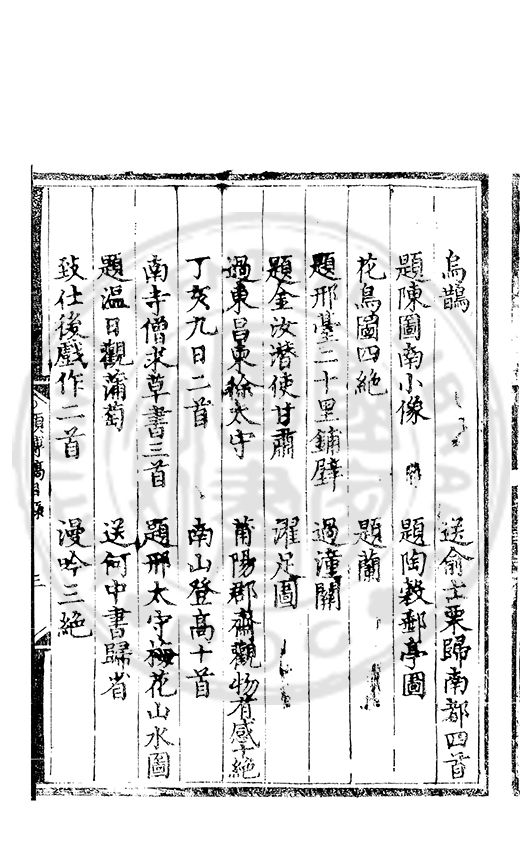 烏鵲 送俞士栗歸南都四首
題陳圖南小像 題陶穀郵亭圖
花鳥圖四絶 題蘭
題邢臺二十里鋪壁 過潼關
題金汝潛使甘肅 濯足圖
過東昌柬徐太守 莆陽郡齋觀物有感十絶
丁亥九日二首 南山登高十首
南寺僧求草書三首 題邢太守梅花山水圖
題温日觀蒲萄 送何中書歸省
致仕後戲作二首 漫吟三絶
目録
三